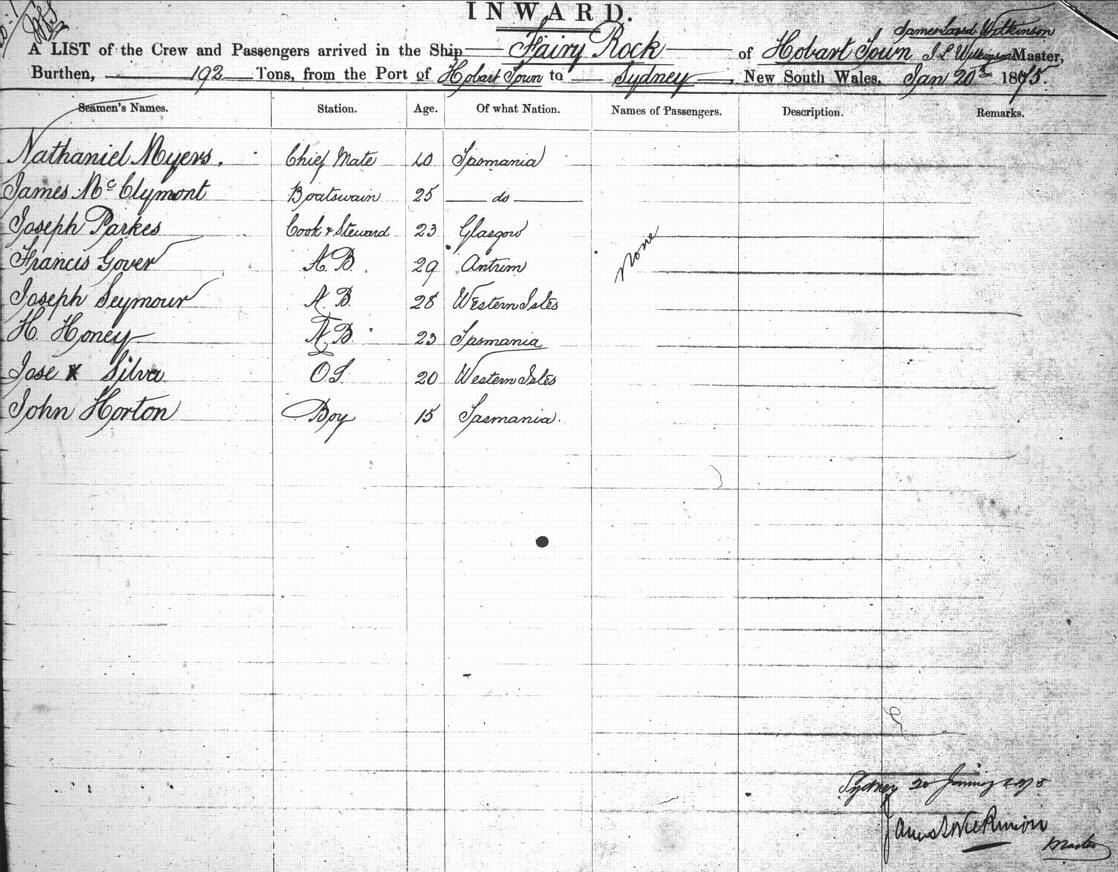 INWARD.
A LIST of the Crew and Passengers arrived in the Ship Fairy Rock of Hobart Town J L Wilkinson Master,
Burthen, 192 Tons, from the Port of Hobart Town to Sydney, New South Wales, Jan 20th 1875.
Seamen's Names. Station. Age. Of what Nation. Names of Passengers. Description. Remarks.
Nathaniel Myers. Chief Mate 40 Tasmania
James McClymont Boatswain 25 do
Joseph Parkes Cook & Steward 23 Glasgow
Francis Gover A.B. 29 Antrim none
Joseph Seymour A.B. 28 Western Isles
H. Honey A.B. 23 Tasmania
Jose Silva O.S. 20 Western Isles
John Horton Boy 15 Tasmania.
Sydney 20 January 1875
James L Wilkinson
Master